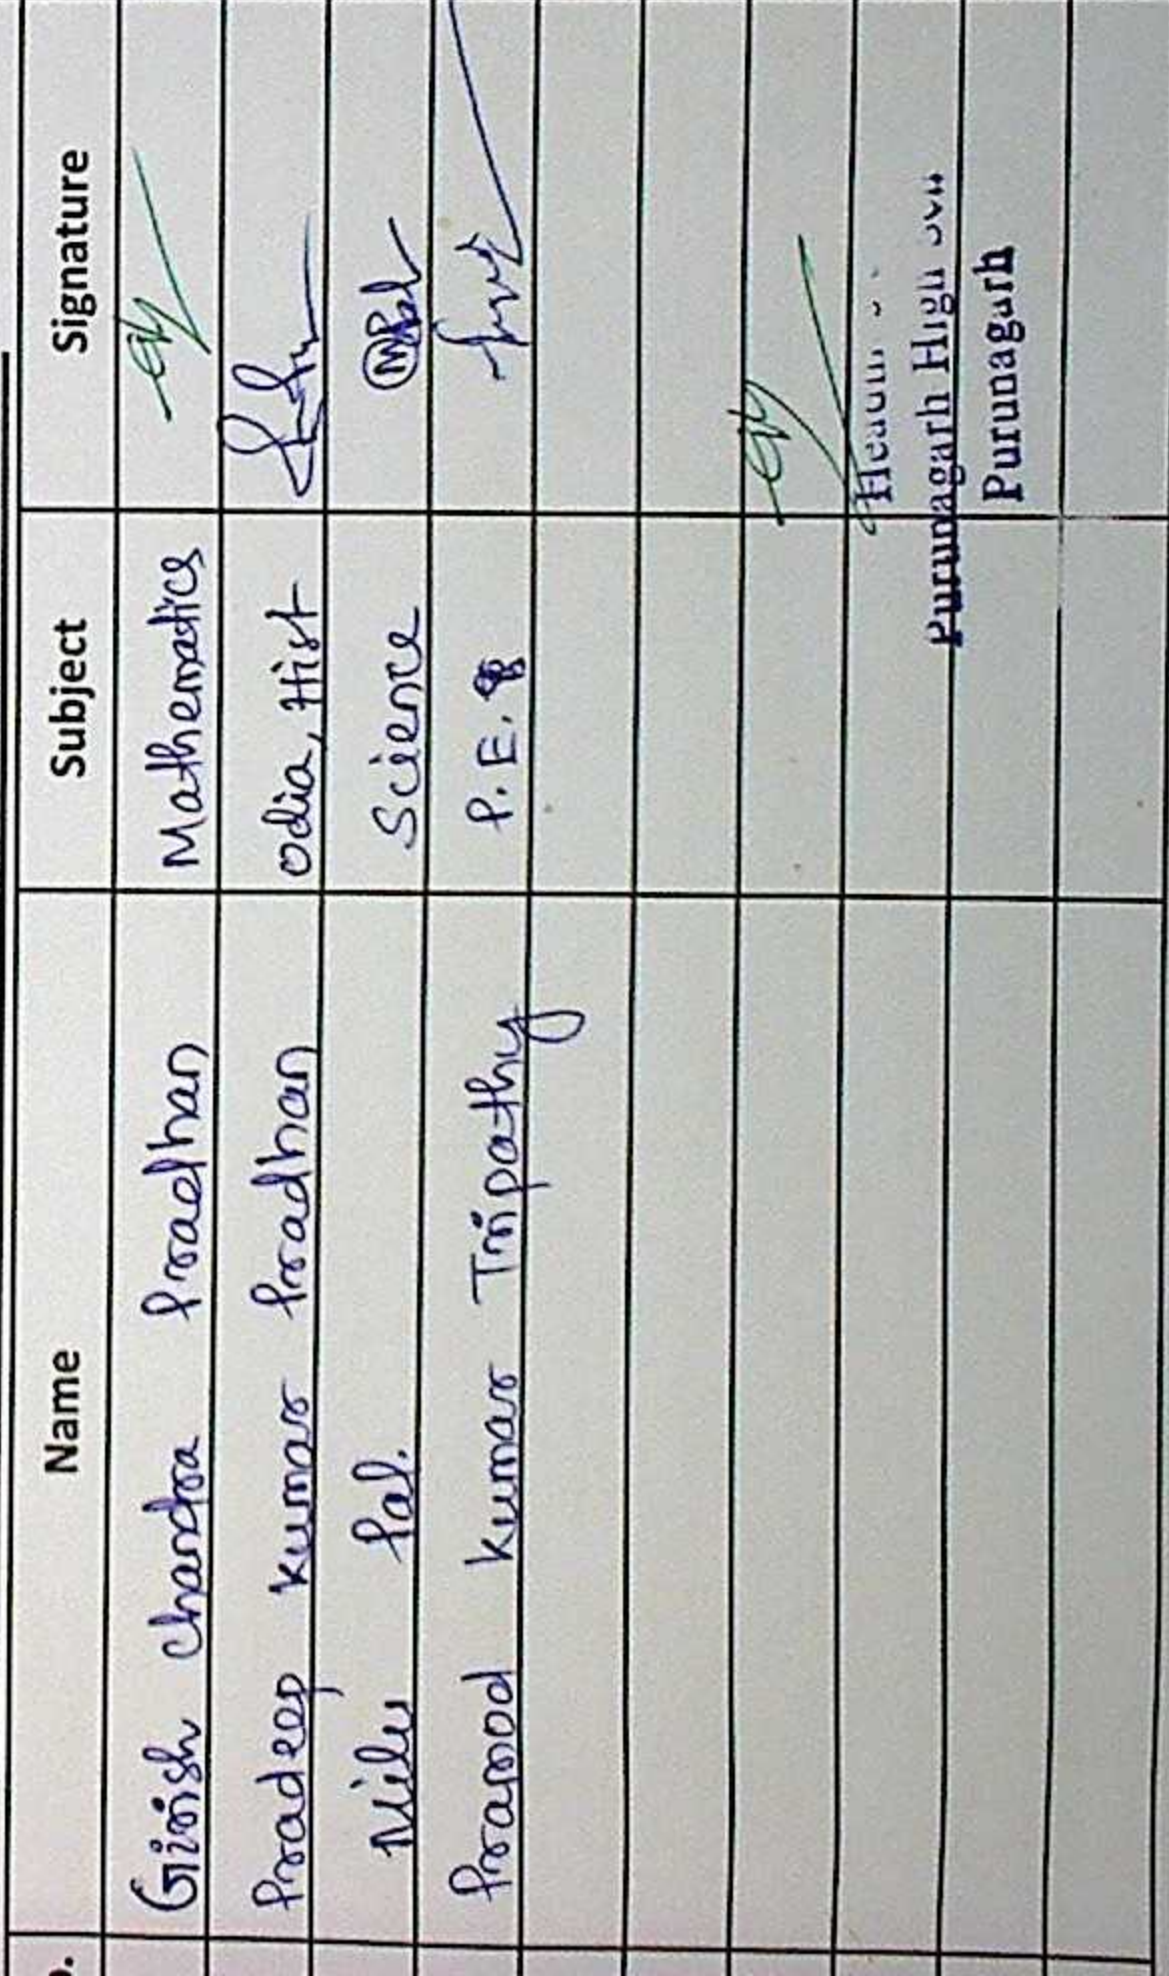 Name Subject Signature
Girish Chandra Pradhan Mathematics
Pradeep Kumar Pradhan Odia, Hist
Nilu Pal. Science
Pramod Kumar Tripathy P.E.
Purunagarh High
Purunagarh